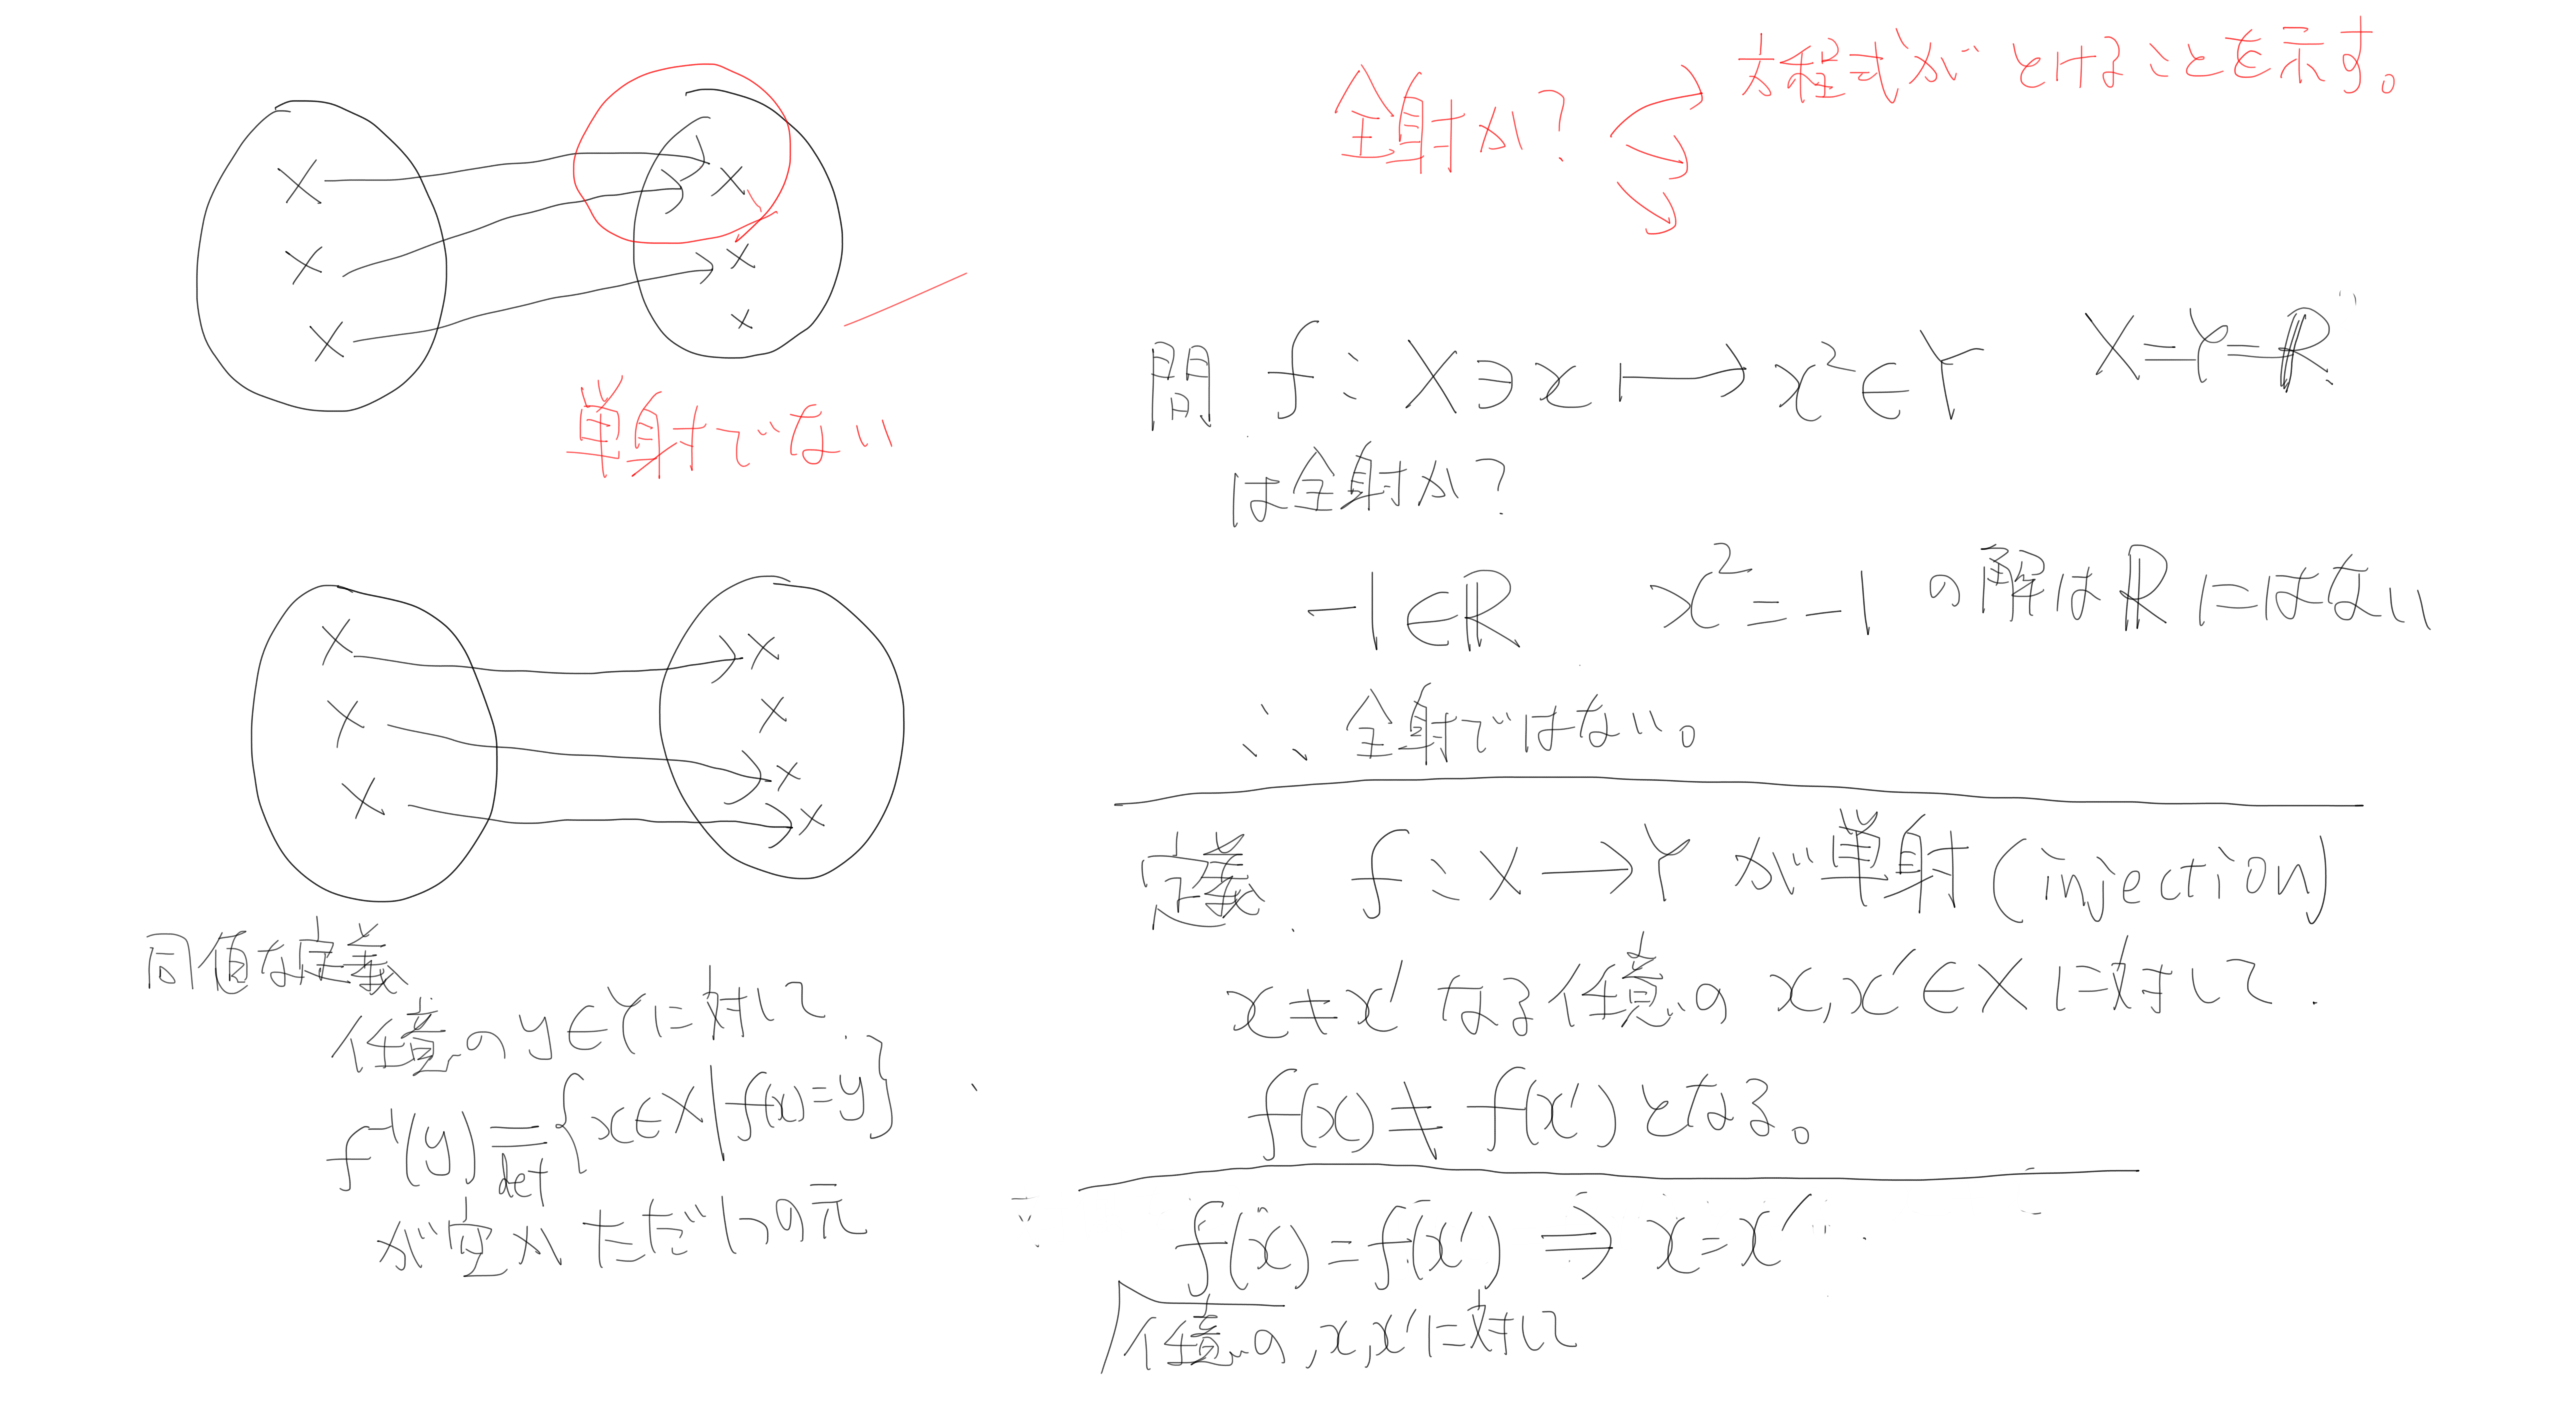 単射でない
同値な定義
任意のy∈Yに対して
f⁻¹(y) = {x∈X | f(x)=y}
def
が空かただ1つの元
全射か?
方程式がとけることを示す。
問 f : X∋x ↦ x²∈Y X=Y=ℝ
は全射か?
-1∈ℝ x²=-1 の解はℝにはない
∴ 全射ではない。
定義. f : X→Y が単射 (injection)
x≠x' なる任意の x,x'∈X に対して.
f(x)≠f(x')となる。
f(x)=f(x') ⇒ x=x'
任意の,x,x'に対して